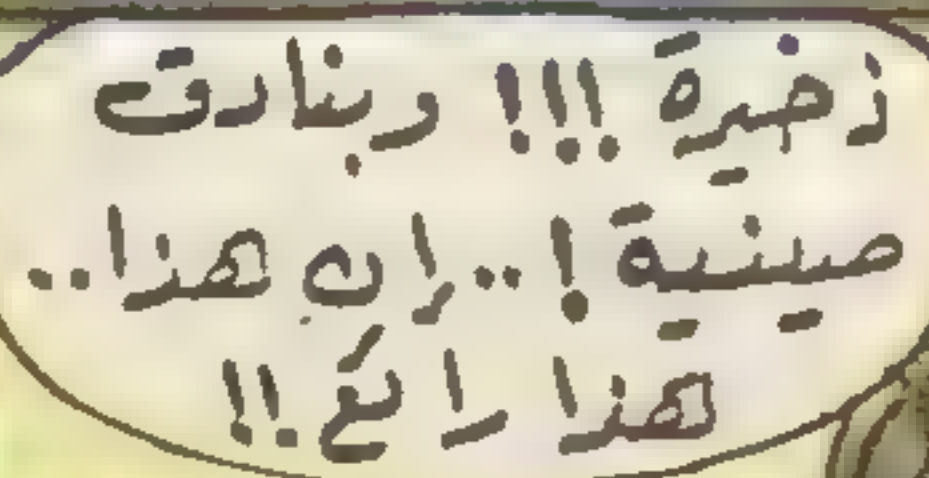 ذخيرة !!! وبنادق
صينية ! .. إن هذا ..
هذا رائع !!